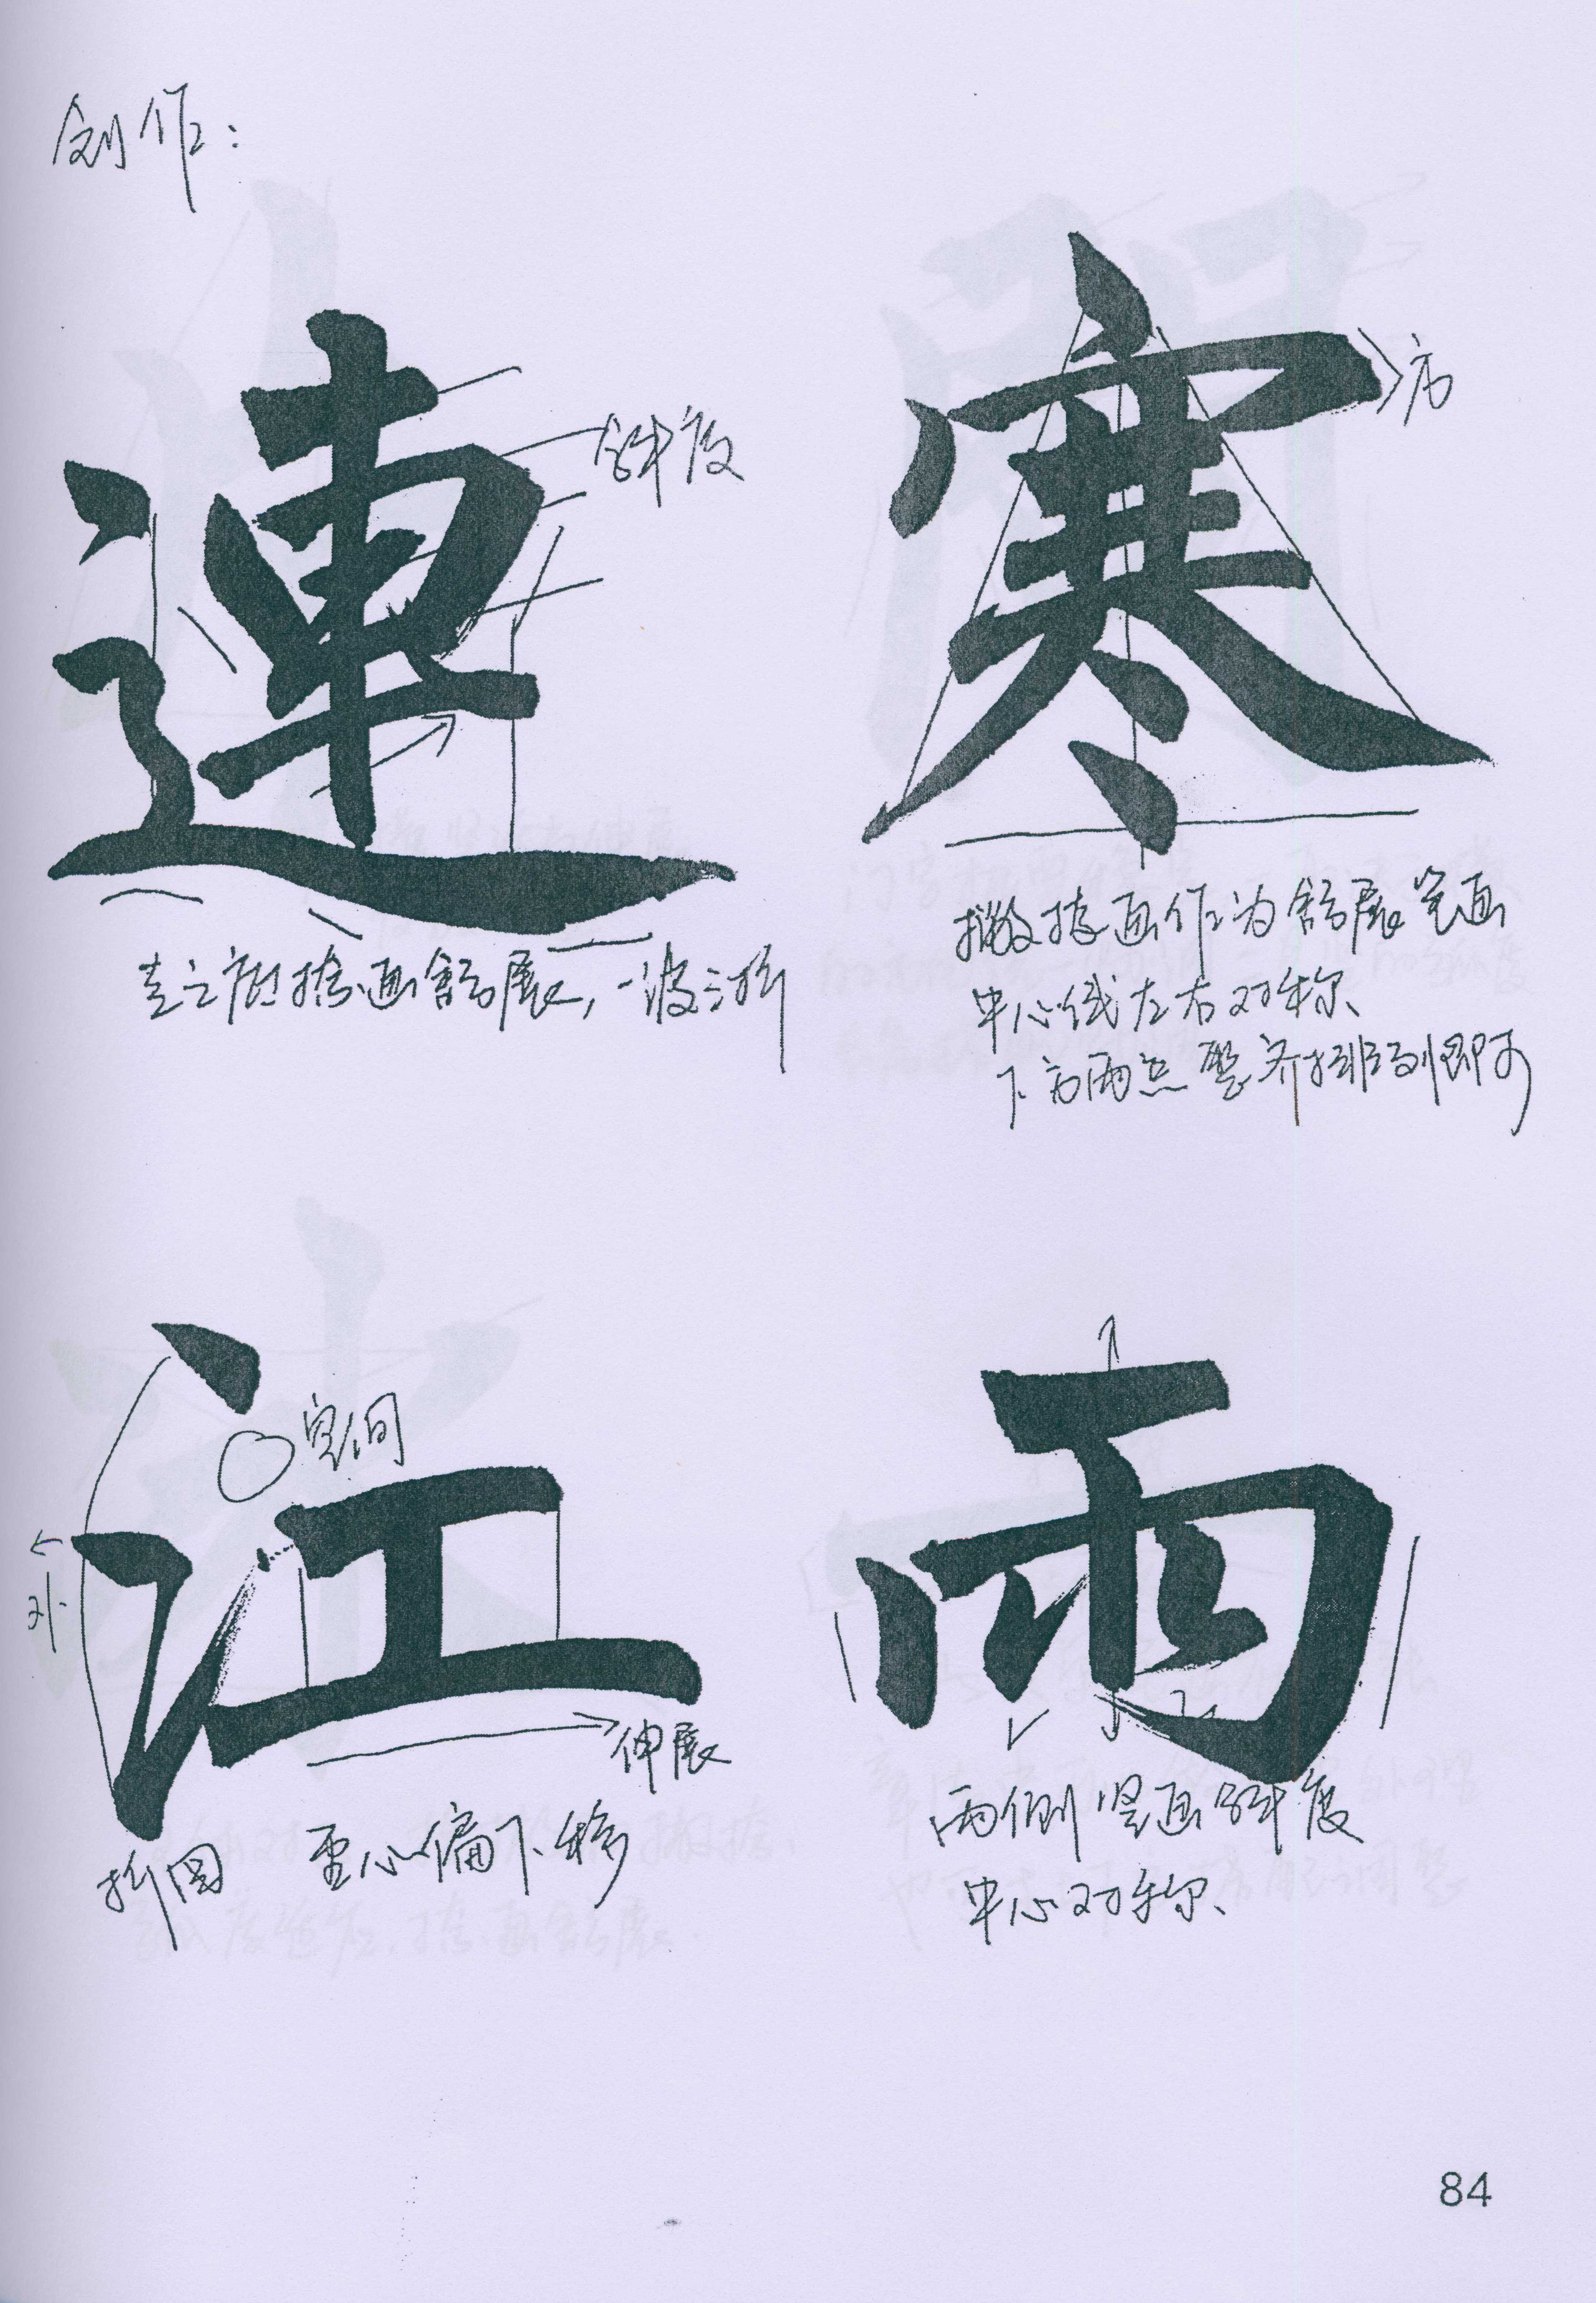 创作:
連
斜度
走之底捺画舒展,一波三折
寒
方
撇捺画作为舒展笔画
中心线左右对称
下方两点整齐排列即可
江
空间
外
伸展
折圆 重心偏下移
雨
两侧竖画斜度
中心对称
84